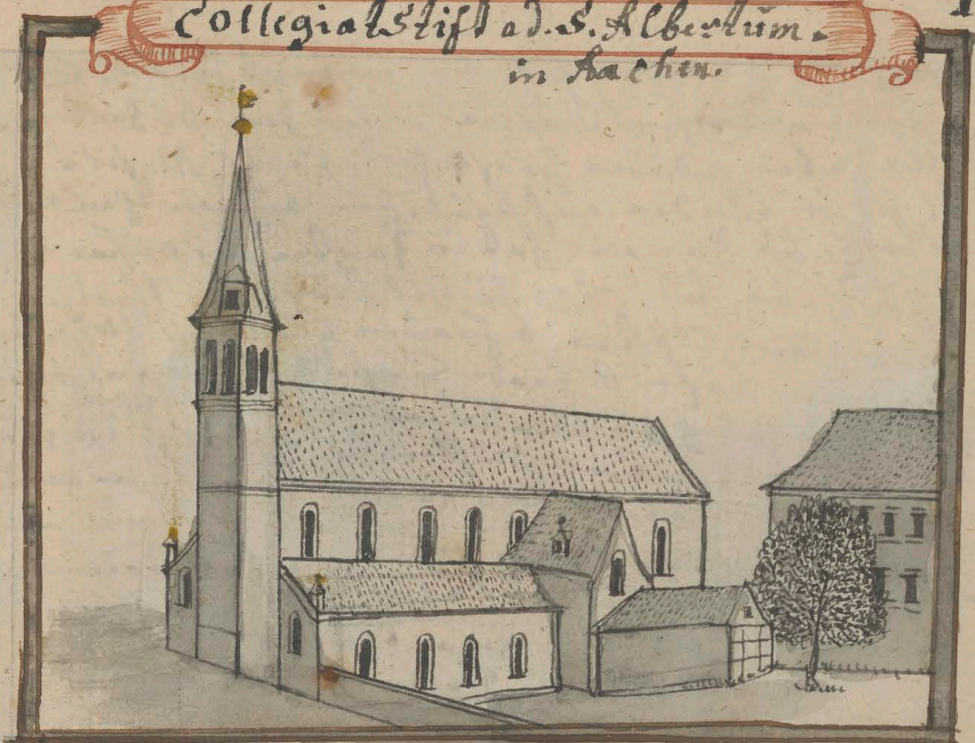 CollegiatStift ad. S. Albertum.
in Aachen.